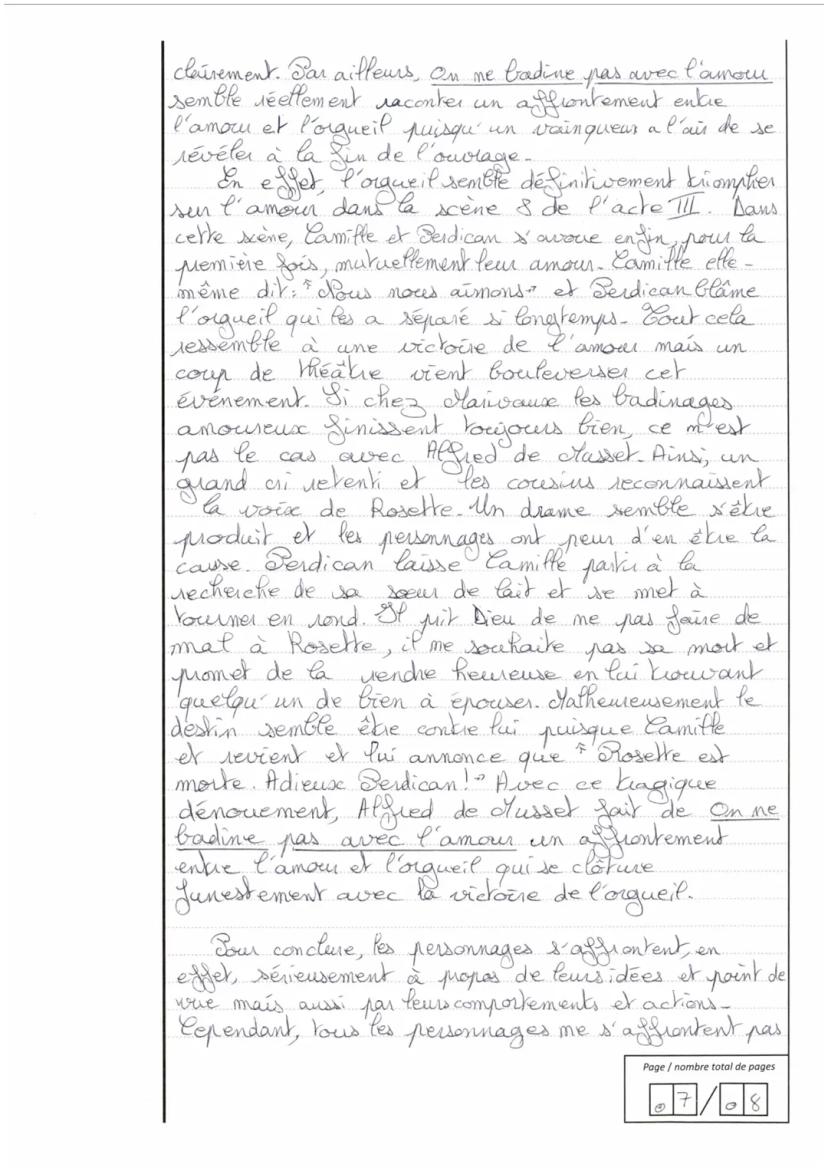 clairement. Par ailleurs, On ne badine pas avec l'amour
semble réellement raconter un affrontement entre
l'amour et l'orgueil puisqu'un vainqueur a l'air de se
révéler à la fin de l'ouvrage.
En effet, l'orgueil semble définitivement triompher
sur l'amour dans la scène 8 de l'acte III. Dans
cette scène, Camille et Perdican s'avoue enfin, pour la
première fois, mutuellement leur amour. Camille elle-
même dit : "Nous nous aimons" et Perdican blâme
l'orgueil qui les a séparé si longtemps. Tout cela
ressemble à une victoire de l'amour mais un
coup de théâtre vient bouleverser cet
événement. Si chez Marivaux les badinages
amoureux finissent toujours bien, ce n'est
pas le cas avec Alfred de Musset. Ainsi, un
grand cri retenti et les cousins reconnaissent
la voix de Rosette. Un drame semble s'être
produit et les personnages ont peur d'en être la
cause. Perdican laisse Camille partir à la
recherche de sa sœur de lait et se met à
tourner en rond. Il prit Dieu de ne pas faire de
mal à Rosette, il ne souhaite pas sa mort et
promet de la rendre heureuse en lui trouvant
quelqu'un de bien à épouser. Malheureusement le
destin semble être contre lui puisque Camille
et revient et lui annonce que "Rosette est
morte. Adieux Perdican!" Avec ce tragique
dénouement, Alfred de Musset fait de On ne
badine pas avec l'amour un affrontement
entre l'amour et l'orgueil qui se clôture
funestement avec la victoire de l'orgueil.
Pour conclure, les personnages s'affrontent, en
effet, sérieusement à propos de leurs idées et point de
vue mais aussi par leurs comportements et actions.
Cependant, tous les personnages ne s'affrontent pas
Page / nombre total de pages
07/08